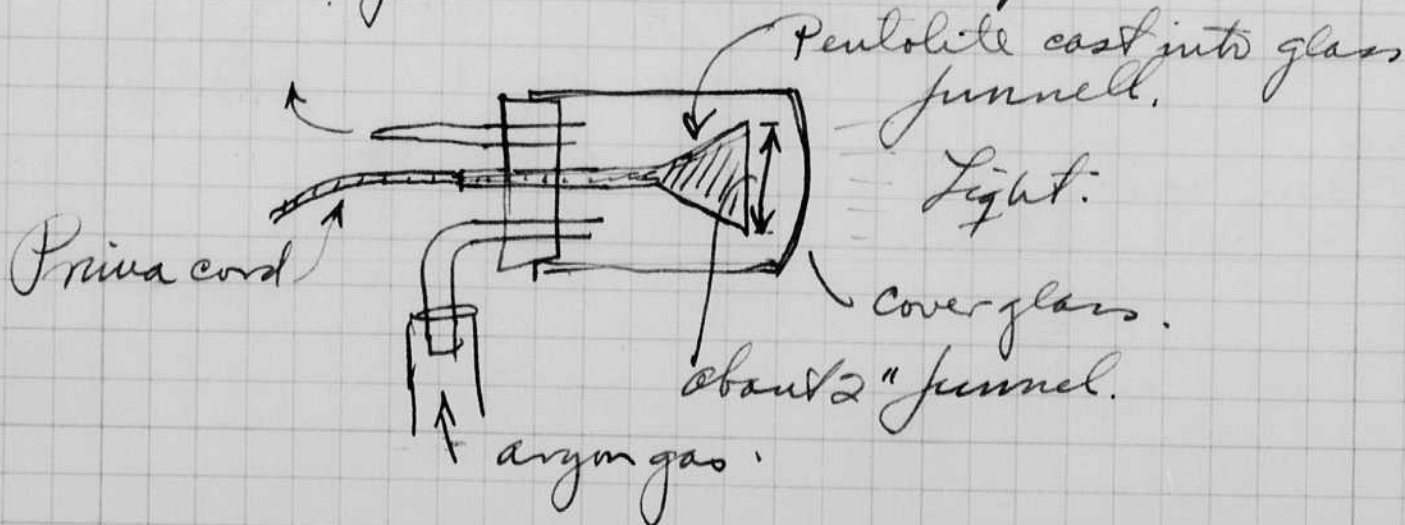 Pentolite cast into glass
funnell.
Light.
Prima cord
cover glass.
about 2" funnel.
argon gas.